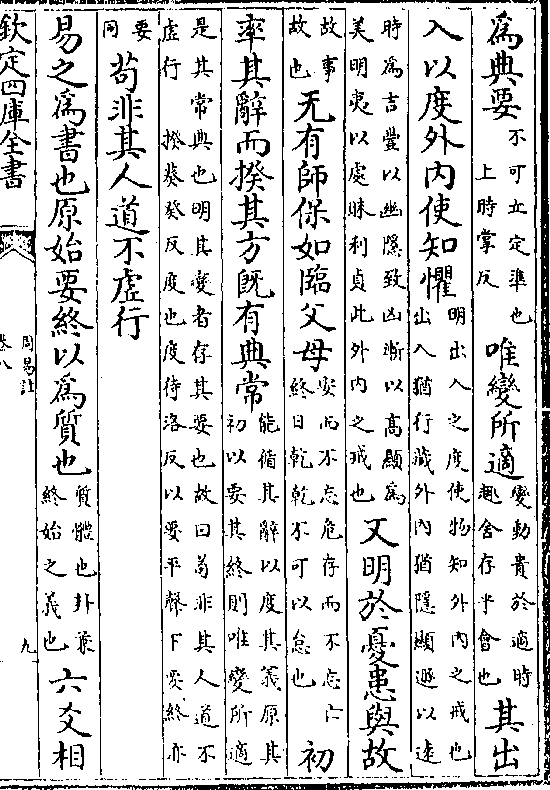 為典要不可立定準也上時掌反唯變所適變動貴於適時趣舍存乎會也其出
入以度外内使知懼明出入之度使物知外内之戒也出入猶行藏外内猶隱顯遯以遠
時為吉豐以幽隱致凶漸以高顯為美明夷以處昧利貞此外内之戒也又明於憂患與故
故事故也无有師保如臨父母安而不忘危存而不忘亡終日乾乾不可以怠也初
率其辭而揆其方既有典常能循其辭以度其義原其初以要其終則唯變所適
是其常典也明其變者存其要也故曰苟非其人道不虛行揆葵癸反度也度待洛反以要平聲下要終亦
要同苟非其人道不虛行
易之為書也原始要終以為質也質體也卦兼終始之義也六爻相
欽定四庫全書
周易註
卷八
九